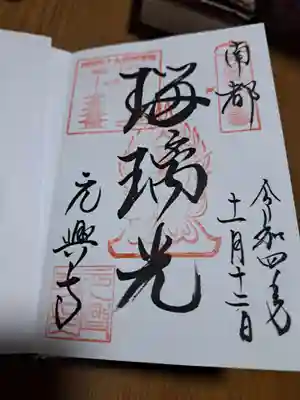 南都
令和四年
十一月十二日
瑠璃光
元興寺